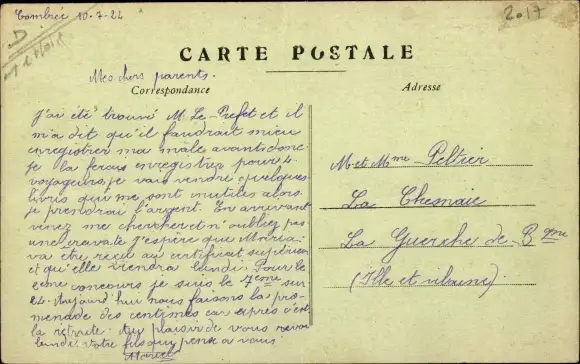 Combrée 10-7-24
2017
CARTE POSTALE
Mes chers parents.
Correspondance
Adresse
J'ai été trouvé M. Le Prefet et il
m'a dit qu'il faudrait mieu
enregistrer ma malle avant donc
je la ferais enregistrer pour 4
voyageurs je vais vendre quelques
livres qui me sont inutiles alors
je prendrai l'argent. En arrivant
venez me chercher et n'oubliez pas
une cravate. J'espère que Maria
va être reçu au certificat supérieur
et qu'elle viendra lundi. Pour le
2ème concours je suis le 7ème sur
24. Aujourd'hui nous faisons la pro-
menade des centimes car après c'est
la retraite. Au plaisir de vous revoir
lundi votre fils qui pense a vous
M et Mme Peltier
La Chesnaie
La Guerche de Bgne
(Ille et vilaine)